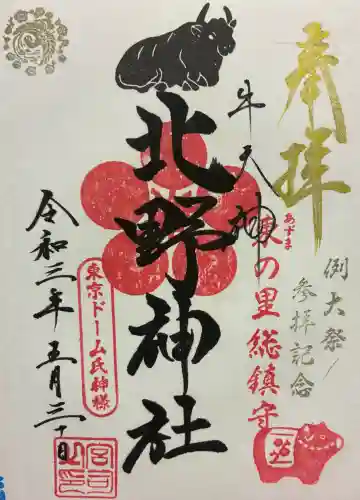 奉拝
例大祭
参拝記念
あずま
東の里総鎮守
牛天神
北野神社
東京ドーム氏神様
令和三年五月三十日
宮司之印